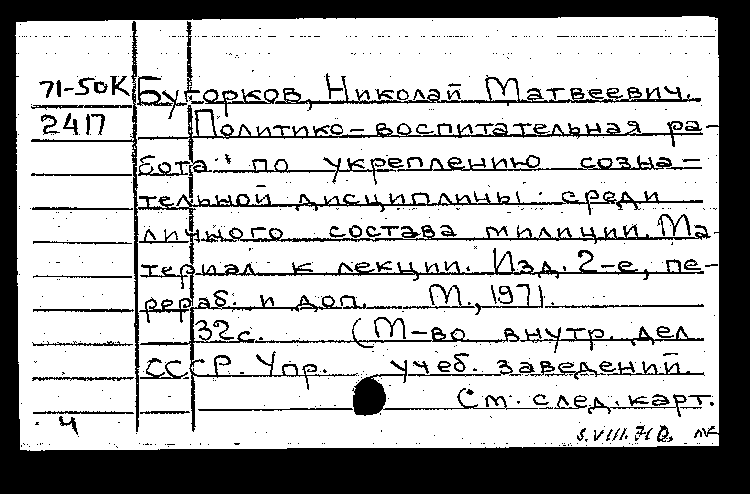 71-50К Бугорков, Николай Матвеевич.
2417 Политико-воспитательная ра-
бота по укреплению созна-
тельной дисциплины среди
личного состава милиции. Ма-
териал к лекции. Изд. 2-е, пе-
рераб. и доп. М., 1971.
32с. (М-во внутр. дел
СССР. Упр. учеб. заведений.
См. след. карт.
4